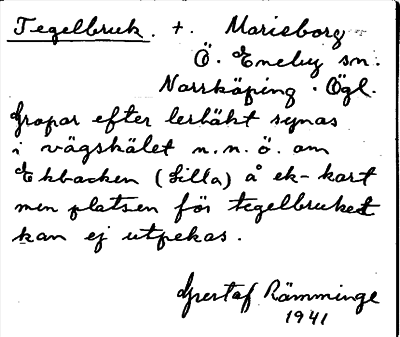 Tegelbruk. +. Marieborg
Ö. Eneby sn.
Norrköping. Ögl.
Gropar efter lertäkt synas
i vägskälet n.n.ö. om
Ekbacken (Lilla) å ek-kart
men platsen för tegelbruket
kan ej utpekas.
Gustaf Rämminge
1941